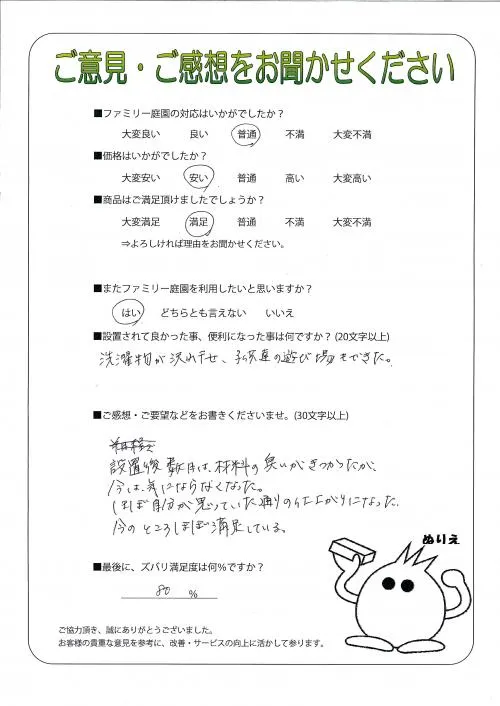 ご意見・ご感想をお聞かせください
■ファミリー庭園の対応はいかがでしたか？
大変良い 良い 普通 不満 大変不満
■価格はいかがでしたか？
大変安い 安い 普通 高い 大変高い
■商品はご満足頂けましたでしょうか？
大変満足 満足 普通 不満 大変不満
⇒よろしければ理由をお聞かせください。
■またファミリー庭園を利用したいと思いますか？
はい どちらとも言えない いいえ
■設置されて良かった事、便利になった事は何ですか？(20文字以上)
洗濯物が沢山干せ、子供達の遊び場もできた。
■ご感想・ご要望などをお書きくださいませ。(30文字以上)
設置後数日は、材料の臭いがきつかったが、
今は、気にならなくなった。
ほぼ自分が思っていた通りの仕上がりになった.
今のところほぼ満足している。
■最後に、ズバリ満足度は何％ですか？
80 %
ぬりえ
ご協力頂き、誠にありがとうございました。
お客様の貴重な意見を参考に、改善・サービスの向上に活かして参ります。